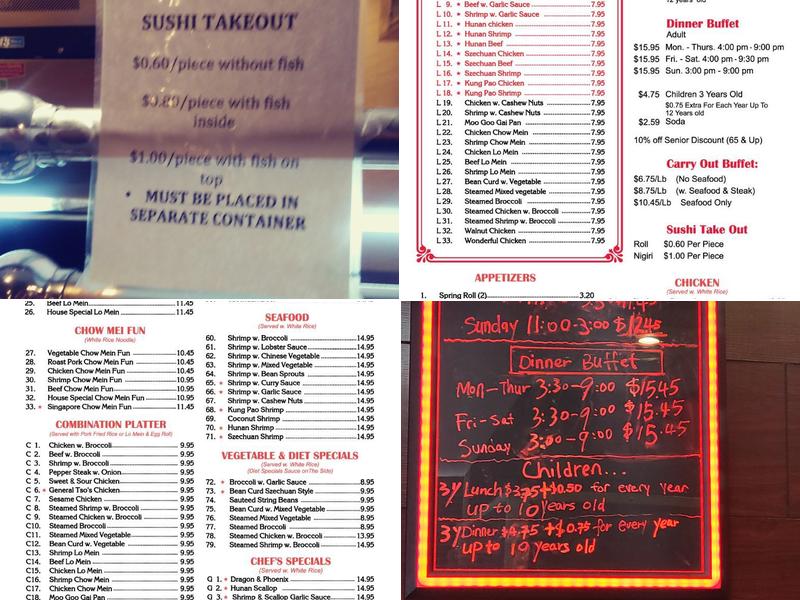 SUSHI TAKEOUT
$0.60/piece without fish
$0.80/piece with fish
inside
$1.00/piece with fish on
top
• MUST BE PLACED IN
SEPARATE CONTAINER
L 9. Beef w. Garlic Sauce 7.95
L 10. Shrimp w. Garlic Sauce 7.95
L 11. Hunan chicken 7.95
L 12. Hunan Shrimp 7.95
L 13. Hunan Beef 7.95
L 14. Szechuan Chicken 7.95
L 15. Szechuan Beef 7.95
L 16. Szechuan Shrimp 7.95
L 17. Kung Pao Chicken 7.95
L 18. Kung Pao Shrimp 7.95
L 19. Chicken w. Cashew Nuts 7.95
L 20. Shrimp w. Cashew Nuts 7.95
L 21. Moo Goo Gai Pan 7.95
L 22. Chicken Chow Mein 7.95
L 23. Shrimp Chow Mein 7.95
L 24. Chicken Lo Mein 7.95
L 25. Beef Lo Mein 7.95
L 26. Shrimp Lo Mein 7.95
L 27. Bean Curd w. Vegetable 7.95
L 28. Steamed Mixed vegetable 7.95
L 29. Steamed Broccoli 7.95
L 30. Steamed Chicken w. Broccoli 7.95
L 31. Steamed Shrimp w. Broccoli 7.95
L 32. Walnut Chicken 7.95
L 33. Wonderful Chicken 7.95
APPETIZERS
1. Spring Roll (2) 3.20
12 years old
Dinner Buffet
Adult
$15.95 Mon. - Thurs. 4:00 pm - 9:00 pm
$15.95 Fri. - Sat. 4:00 pm - 9:30 pm
$15.95 Sun. 3:00 pm - 9:00 pm
$4.75 Children 3 Years Old
$0.75 Extra For Each Year Up To
12 Years old
$2.59 Soda
10% off Senior Discount (65 & Up)
Carry Out Buffet:
$6.75/Lb (No Seafood)
$8.75/Lb (w. Seafood & Steak)
$10.45/Lb Seafood Only
Sushi Take Out
Roll $0.60 Per Piece
Nigiri $1.00 Per Piece
CHICKEN
(Served w. White Rice)
25. Beef Lo Mein 11.45
26. House Special Lo Mein 11.45
CHOW MEI FUN
(White Rice Noodle)
27. Vegetable Chow Mein Fun 10.45
28. Roast Pork Chow Mein Fun 10.45
29. Chicken Chow Mein Fun 10.45
30. Shrimp Chow Mein Fun 10.95
31. Beef Chow Mein Fun 10.95
32. House Special Chow Mein Fun 10.95
33. Singapore Chow Mein Fun 11.45
COMBINATION PLATTER
(Served with Pork Fried Rice or Lo Mein & Egg Roll)
C 1. Chicken w. Broccoli 9.95
C 2. Beef w. Broccoli 9.95
C 3. Shrimp w. Broccoli 9.95
C 4. Pepper Steak w. Onion 9.95
C 5. Sweet & Sour Chicken 9.95
C 6. General Tso's Chicken 9.95
C 7. Sesame Chicken 9.95
C 8. Steamed Shrimp w. Broccoli 9.95
C 9. Steamed Chicken w. Broccoli 9.95
C10. Steamed Broccoli 9.95
C11. Steamed Mixed Vegetable 9.95
C12. Bean Curd w. Vegetable 9.95
C13. Shrimp Lo Mein 9.95
C14. Beef Lo Mein 9.95
C15. Chicken Lo Mein 9.95
C16. Shrimp Chow Mein 9.95
C17. Chicken Chow Mein 9.95
C18. Moo Goo Gai Pan 9.95
SEAFOOD
(Served w. White Rice)
60. Shrimp w. Broccoli 14.95
61. Shrimp w. Lobster Sauce 14.95
62. Shrimp w. Chinese Vegetable 14.95
63. Shrimp w. Mixed Vegetable 14.95
64. Shrimp w. Bean Sprouts 14.95
65. Shrimp w. Curry Sauce 14.95
66. Shrimp w. Garlic Sauce 14.95
67. Shrimp w. Cashew Nuts 14.95
68. Kung Pao Shrimp 14.95
69. Coconut Shrimp 14.95
70. Hunan Shrimp 14.95
71. Szechuan Shrimp 14.95
VEGETABLE & DIET SPECIALS
(Served w. White Rice)
(Diet Specials Sauce onThe Side)
72. Broccoli w. Garlic Sauce 8.95
73. Bean Curd Szechuan Style 9.95
74. Sauteed String Beans 9.95
75. Bean Curd w. Mixed Vegetable 9.95
76. Steamed Mixed Vegetable 8.95
77. Steamed Broccoli 8.95
78. Steamed Chicken w. Broccoli 13.95
79. Steamed Shrimp w. Broccoli 14.95
CHEF'S SPECIALS
(Served w. White Rice)
G 1. Dragon & Phoenix 14.95
G 2. Hunan Scallop 14.95
G 3. Shrimp & Scallop Garlic Sauce 14.95
Sunday 11:00-3:00 $12.45
Dinner Buffet
Mon-Thur 3:30-9:00 $15.45
Fri-Sat 3:30-9:00 $15.45
Sunday 3:00-9:00 $15.45
Children...
3y Lunch $3.75+$0.50 for every year
up to 10 years old
3y Dinner $4.75 +$0.75 for every year
up to 10 years old